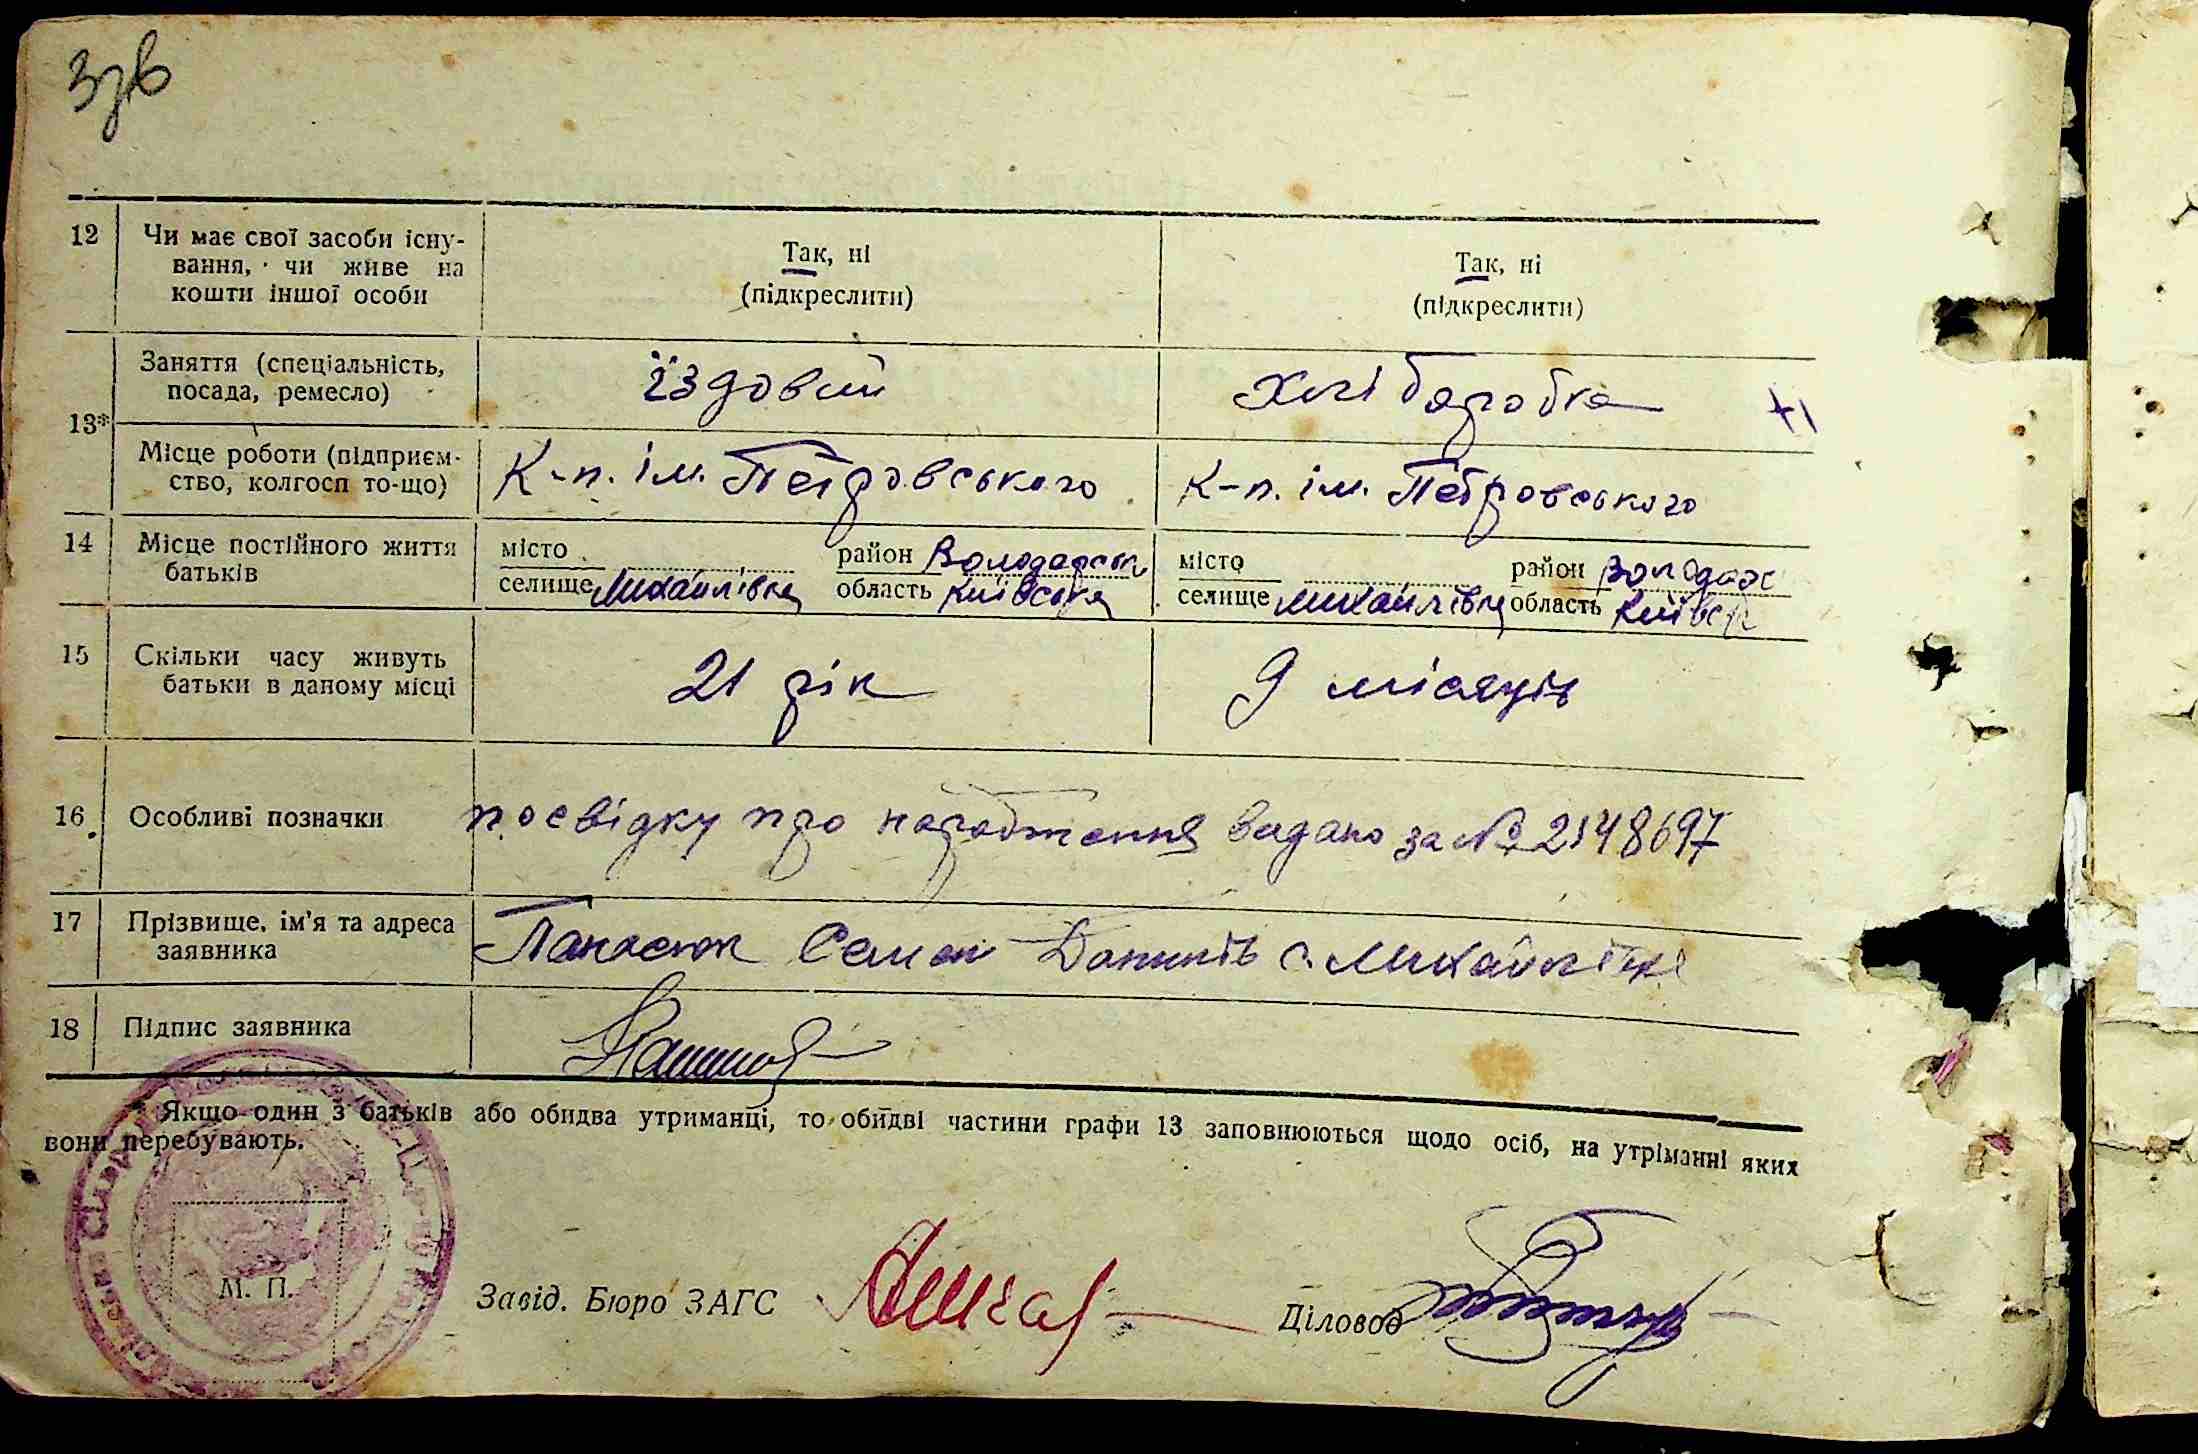 Зув
12 Чи має свої засоби існу-
вання, чи живе на
кошти іншої особи
Так, ні
(підкреслити)
Так, ні
(підкреслити)
13* Заняття (спеціальність,
посада, ремесло)
їздовий
Хліборобка
Місце роботи (підприєм-
ство, колгосп то-що)
К-п. ім. Петровського
К-п. ім. Петровського
14 Місце постійного життя
батьків
місто район Володарськ
селище Михайлівка область Київська
місто район Володарс
селище Михайлівка область Київськ
15 Скільки часу живуть
батьки в даному місці
21 рік
9 місяців
16 Особливі позначки
посвідку про народження видано за № 2148697
17 Прізвище, ім'я та адреса
заявника
Панасюк Семен Данилів с. Михайлівка
18 Підпис заявника
* Якщо один з батьків або обидва утриманці, то обидві частини графи 13 заповнюються щодо осіб, на утріманні яких
вони перебувають.
М. П.
Завід. Бюро ЗАГС
Діловод